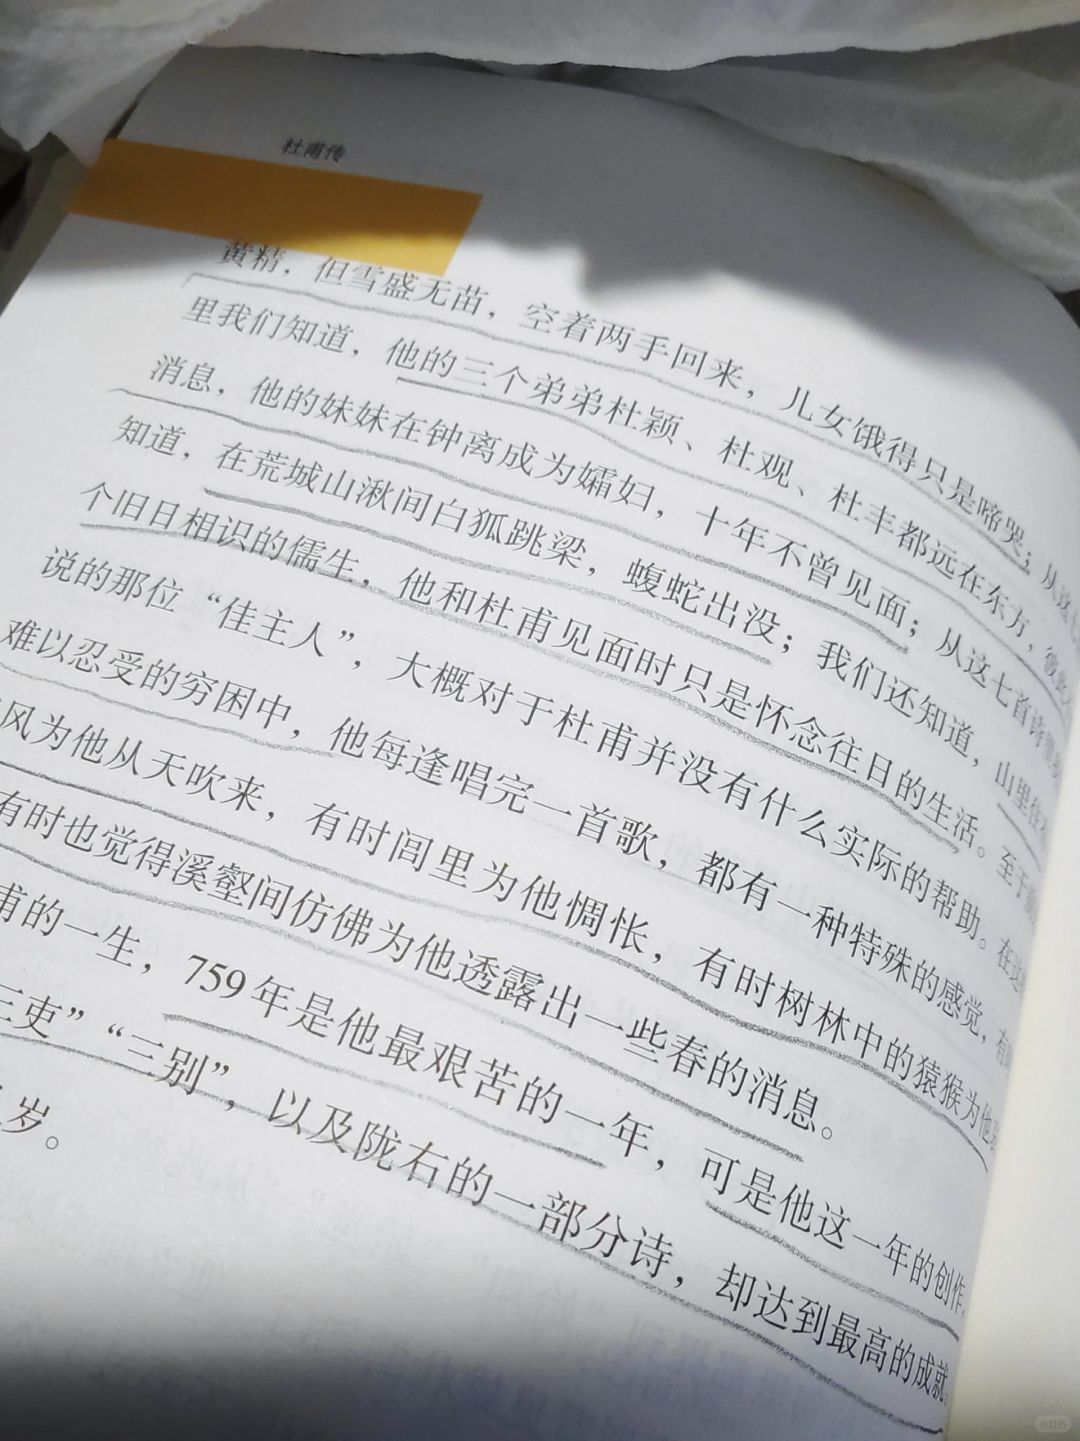 杜甫传
黄精，但雪盛无苗，空着两手回来，儿女饿得只是啼哭；从这
里我们知道，他的三个弟弟杜颖、杜观、杜丰都远在东方，彼此
消息，他的妹妹在钟离成为孀妇，十年不曾见面；从这七首诗里
知道，在荒城山湫间白狐跳梁，蝮蛇出没；我们还知道，山里住
个旧日相识的儒生，他和杜甫见面时只是怀念往日的生活。至于
说的那位“佳主人”，大概对于杜甫并没有什么实际的帮助。在这
难以忍受的穷困中，他每逢唱完一首歌，都有一种特殊的感觉，有
风为他从天吹来，有时闾里为他惆怅，有时树林中的猿猴为他
有时也觉得溪壑间仿佛为他透露出一些春的消息。
甫的一生，759年是他最艰苦的一年，可是他这一年的创作，
三吏”“三别”，以及陇右的一部分诗，却达到最高的成就。
岁。
小红书